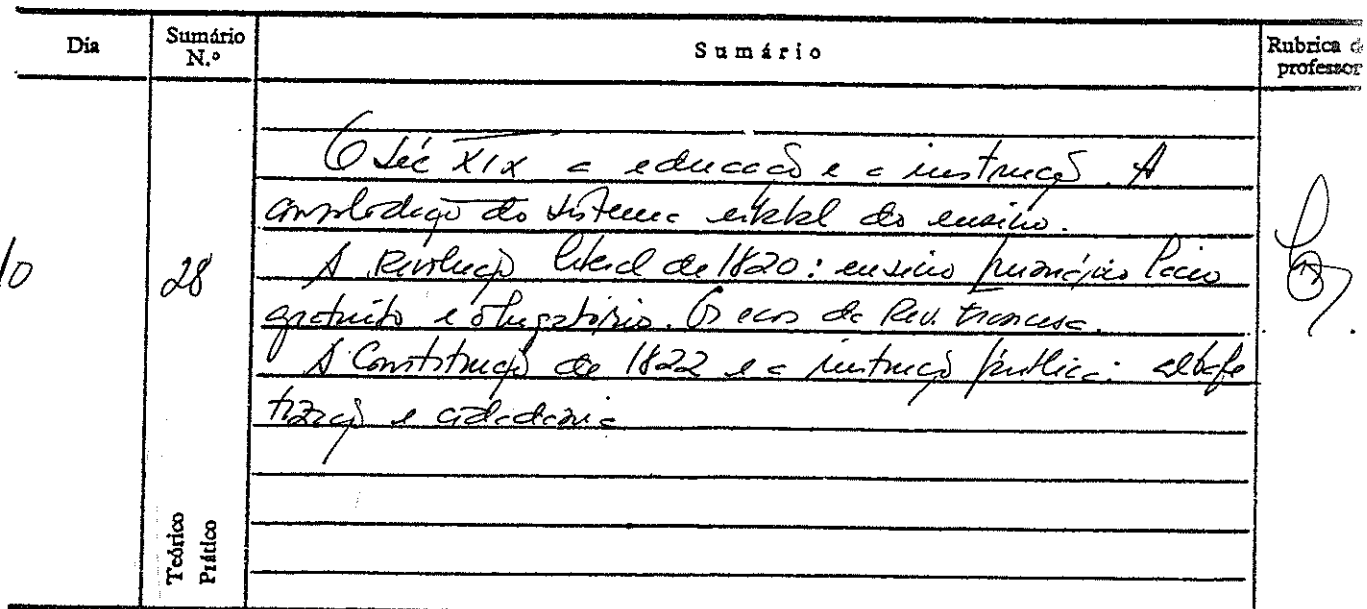 Dia
Sumário N.º
Sumário
Rubrica d
professor
O Séc XIX a educação e a instrução. A
consolidação do sistema estatal do ensino.
10
28
A Revolução liberal de 1820: ensino primário laico
gratuito e obrigatório. Os ecos da Rev. Francesa.
A Constituição de 1822 e a instrução pública: alfabe
tização e cidadania
Teórico
Prático